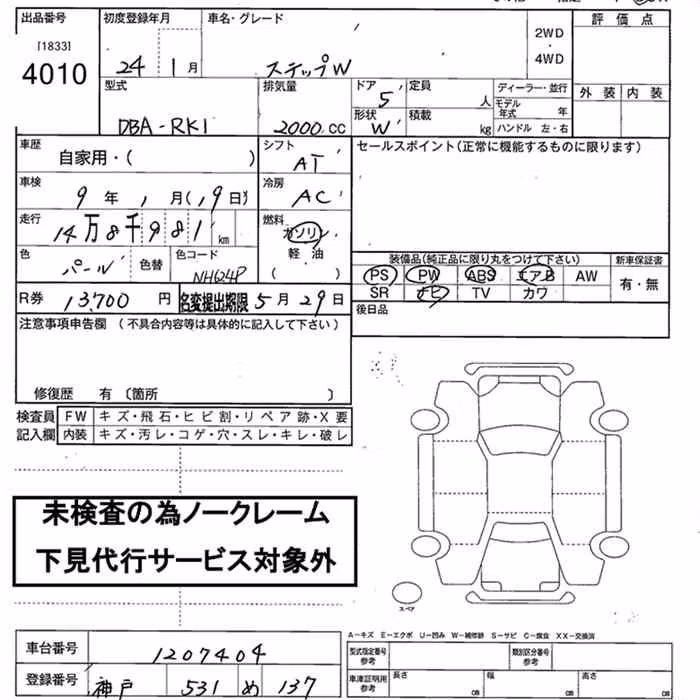 出品番号 初度登録年月 車名・グレード 評価点
[1833]
4010
24 1月 ステップW
2WD
・
4WD
外装 内装
型式 排気量 ドア 定員 ディーラー・並行
5 人 モデル年式 年
DBA-RK1 2000cc 形状 W 積載 kg ハンドル 左・右
車歴 自家用・( ) シフト AT セールスポイント(正常に機能するものに限ります)
車検 9年1月(19日) 冷房 AC
走行 14万8千981km 燃料 ガソリン
軽油
( )
色 パール 色替 色コード NH624P
装備品(純正品に限り丸をつけて下さい) 新車保証書
PS PW ABS エアB AW 有・無
SR ナビ TV カワ
R券 13,700円 名変提出期限 5月29日 後日品
注意事項申告欄 (不具合内容等は具体的に記入して下さい)
修復歴 有 〔箇所 〕
検査員 FW キズ・飛石・ヒビ割・リペア跡・X要
記入欄 内装 キズ・汚レ・コゲ・穴・スレ・キレ・破レ
未検査の為ノークレーム
下見代行サービス対象外
スペア
A-キズ E-エクボ U-凹み W-補修跡 S-サビ C-腐食 XX-交換済
車台番号 1207404
型式指定番号 参考 類別区分番号 参考
登録番号 神戸 531 め 137
車庫証明用 参考 長さ cm 幅 cm 高さ cm